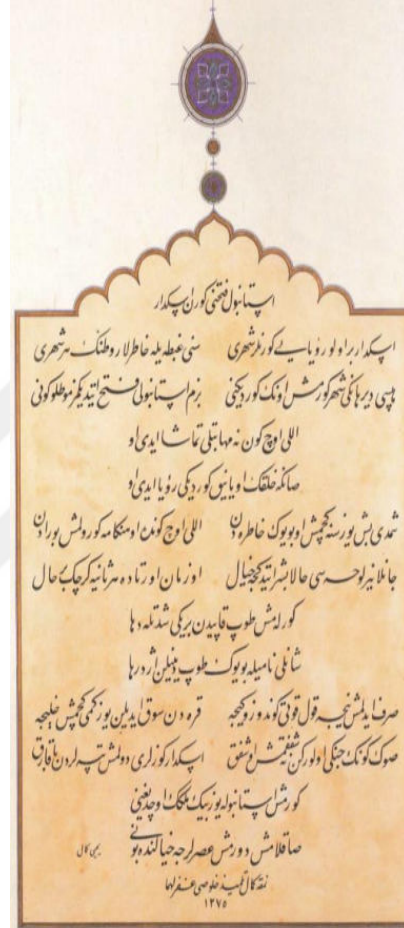 استانبول فتحنی كورن اسكدار
اسكدار بر اولو رؤیایی كورنلر شهری سنی غبطه یله خاطرلار وطنك هر شهری
هپسی دیر هانكی شهر كورمش اونك كوردیكنی بزم استانبولی فتح ایتدیكمز موطلو كونی
اللی اوچ كون نه مهابتلی تماشا ایدی او
صانكه خلقك اویانیق كوردیكی رؤیا ایدی او
شمدی بش یوز سنه كچمش او بویوك خاطره دن اللی اوچ كونده او هنكامه كورولمش بورادن
جانلانیر لوحه سی حالا بشر ایتدكجه خیال او زمان اورتاده هر ثانیه كرچك بر حال
كورله مش طوپ قاپیدن بر یكی شدتله دها
شانلی نامیله بویوك طوپ دینیلن اژدرها
صرف ایدلمش نیجه قول قوتی كوندوز و كیجه قره دن سوق ایدیلن یوز كمی كچمش خلیجه
صوك كونك جنكی اولوركن نه شفقمش او شفق اسكدار كوزلری دولمش تپه لردن باقارق
كورمش استانبوله یوز بیك ملكك اوچدیغنی
صاقلامش دورمش عصرلرجه خیالنده بونی
یحیی كمال
نمقه كمال تلمیذ خلوصی غفر لهما
١٣٧٥